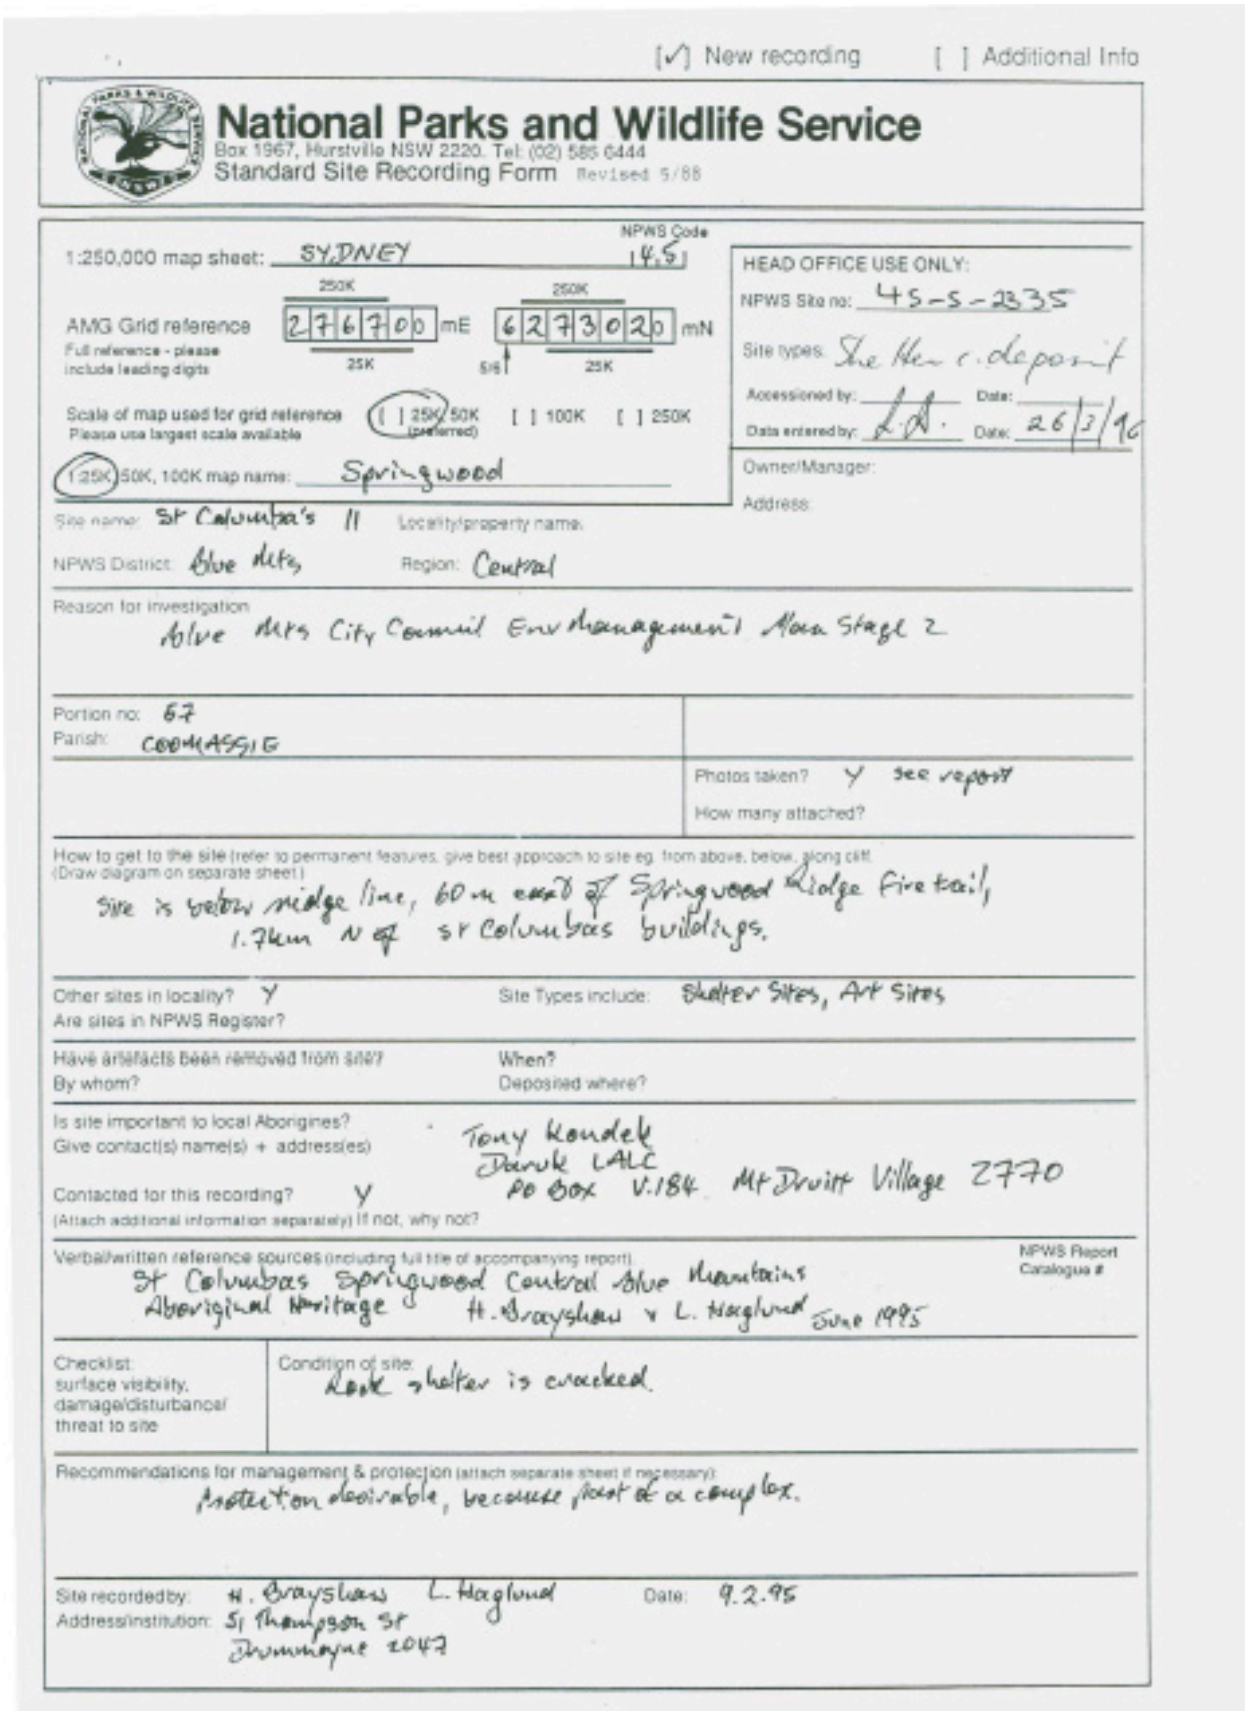 [✓] New recording [ ] Additional Info
NATIONAL PARKS & WILDLIFE SERVICE
N.S.W.
National Parks and Wildlife Service
Box 1967, Hurstville NSW 2220. Tel: (02) 585 6444
Standard Site Recording Form Revised 5/88
NPWS Code
1:250,000 map sheet: SYDNEY 14.5
250K 250K
AMG Grid reference 276700 mE 6273020 mN
Full reference - please
include leading digits
25K 5/6 25K
Scale of map used for grid reference [ ] 25K/50K [ ] 100K [ ] 250K
Please use largest scale available (preferred)
1:25K, 50K, 100K map name: Springwood
HEAD OFFICE USE ONLY:
NPWS Site no: 45-5-2335
Site types: Shelter c. deposit
Accessioned by: Date:
Data entered by: Date: 26/3/96
Owner/Manager:
Address:
Site name: St Columba's 11 Locality/property name:
NPWS District: Blue Mts Region: Central
Reason for investigation
Blue Mts City Council Env Management Plan Stage 2
Portion no: 67
Parish: COOMASSIE
Photos taken? Y see report
How many attached?
How to get to the site (refer to permanent features, give best approach to site eg. from above, below, along cliff.
(Draw diagram on separate sheet.)
Site is below ridge line, 60m east of Springwood Ridge Firetrail,
1.7km N of St Columbas buildings.
Other sites in locality? Y Site Types include: Shelter Sites, Art Sites
Are sites in NPWS Register?
Have artefacts been removed from site? When?
By whom? Deposited where?
Is site important to local Aborigines?
Give contact(s) name(s) + address(es)
Tony Kondek
Daruk LALC
PO Box V.184 Mt Druitt Village 2770
Contacted for this recording? Y
(Attach additional information separately) If not, why not?
Verbal/written reference sources (including full title of accompanying report).
NPWS Report
Catalogue #
St Columbas Springwood Central Blue Mountains
Aboriginal Heritage H. Brayshaw & L. Haglund June 1995
Checklist:
surface visibility,
damage/disturbance/
threat to site
Condition of site:
Rock shelter is cracked.
Recommendations for management & protection (attach separate sheet if necessary):
Protection desirable, because part of a complex.
Site recorded by: H. Brayshaw L. Haglund Date: 9.2.95
Address/institution: 51 Thompson St
Drummoyne 2047